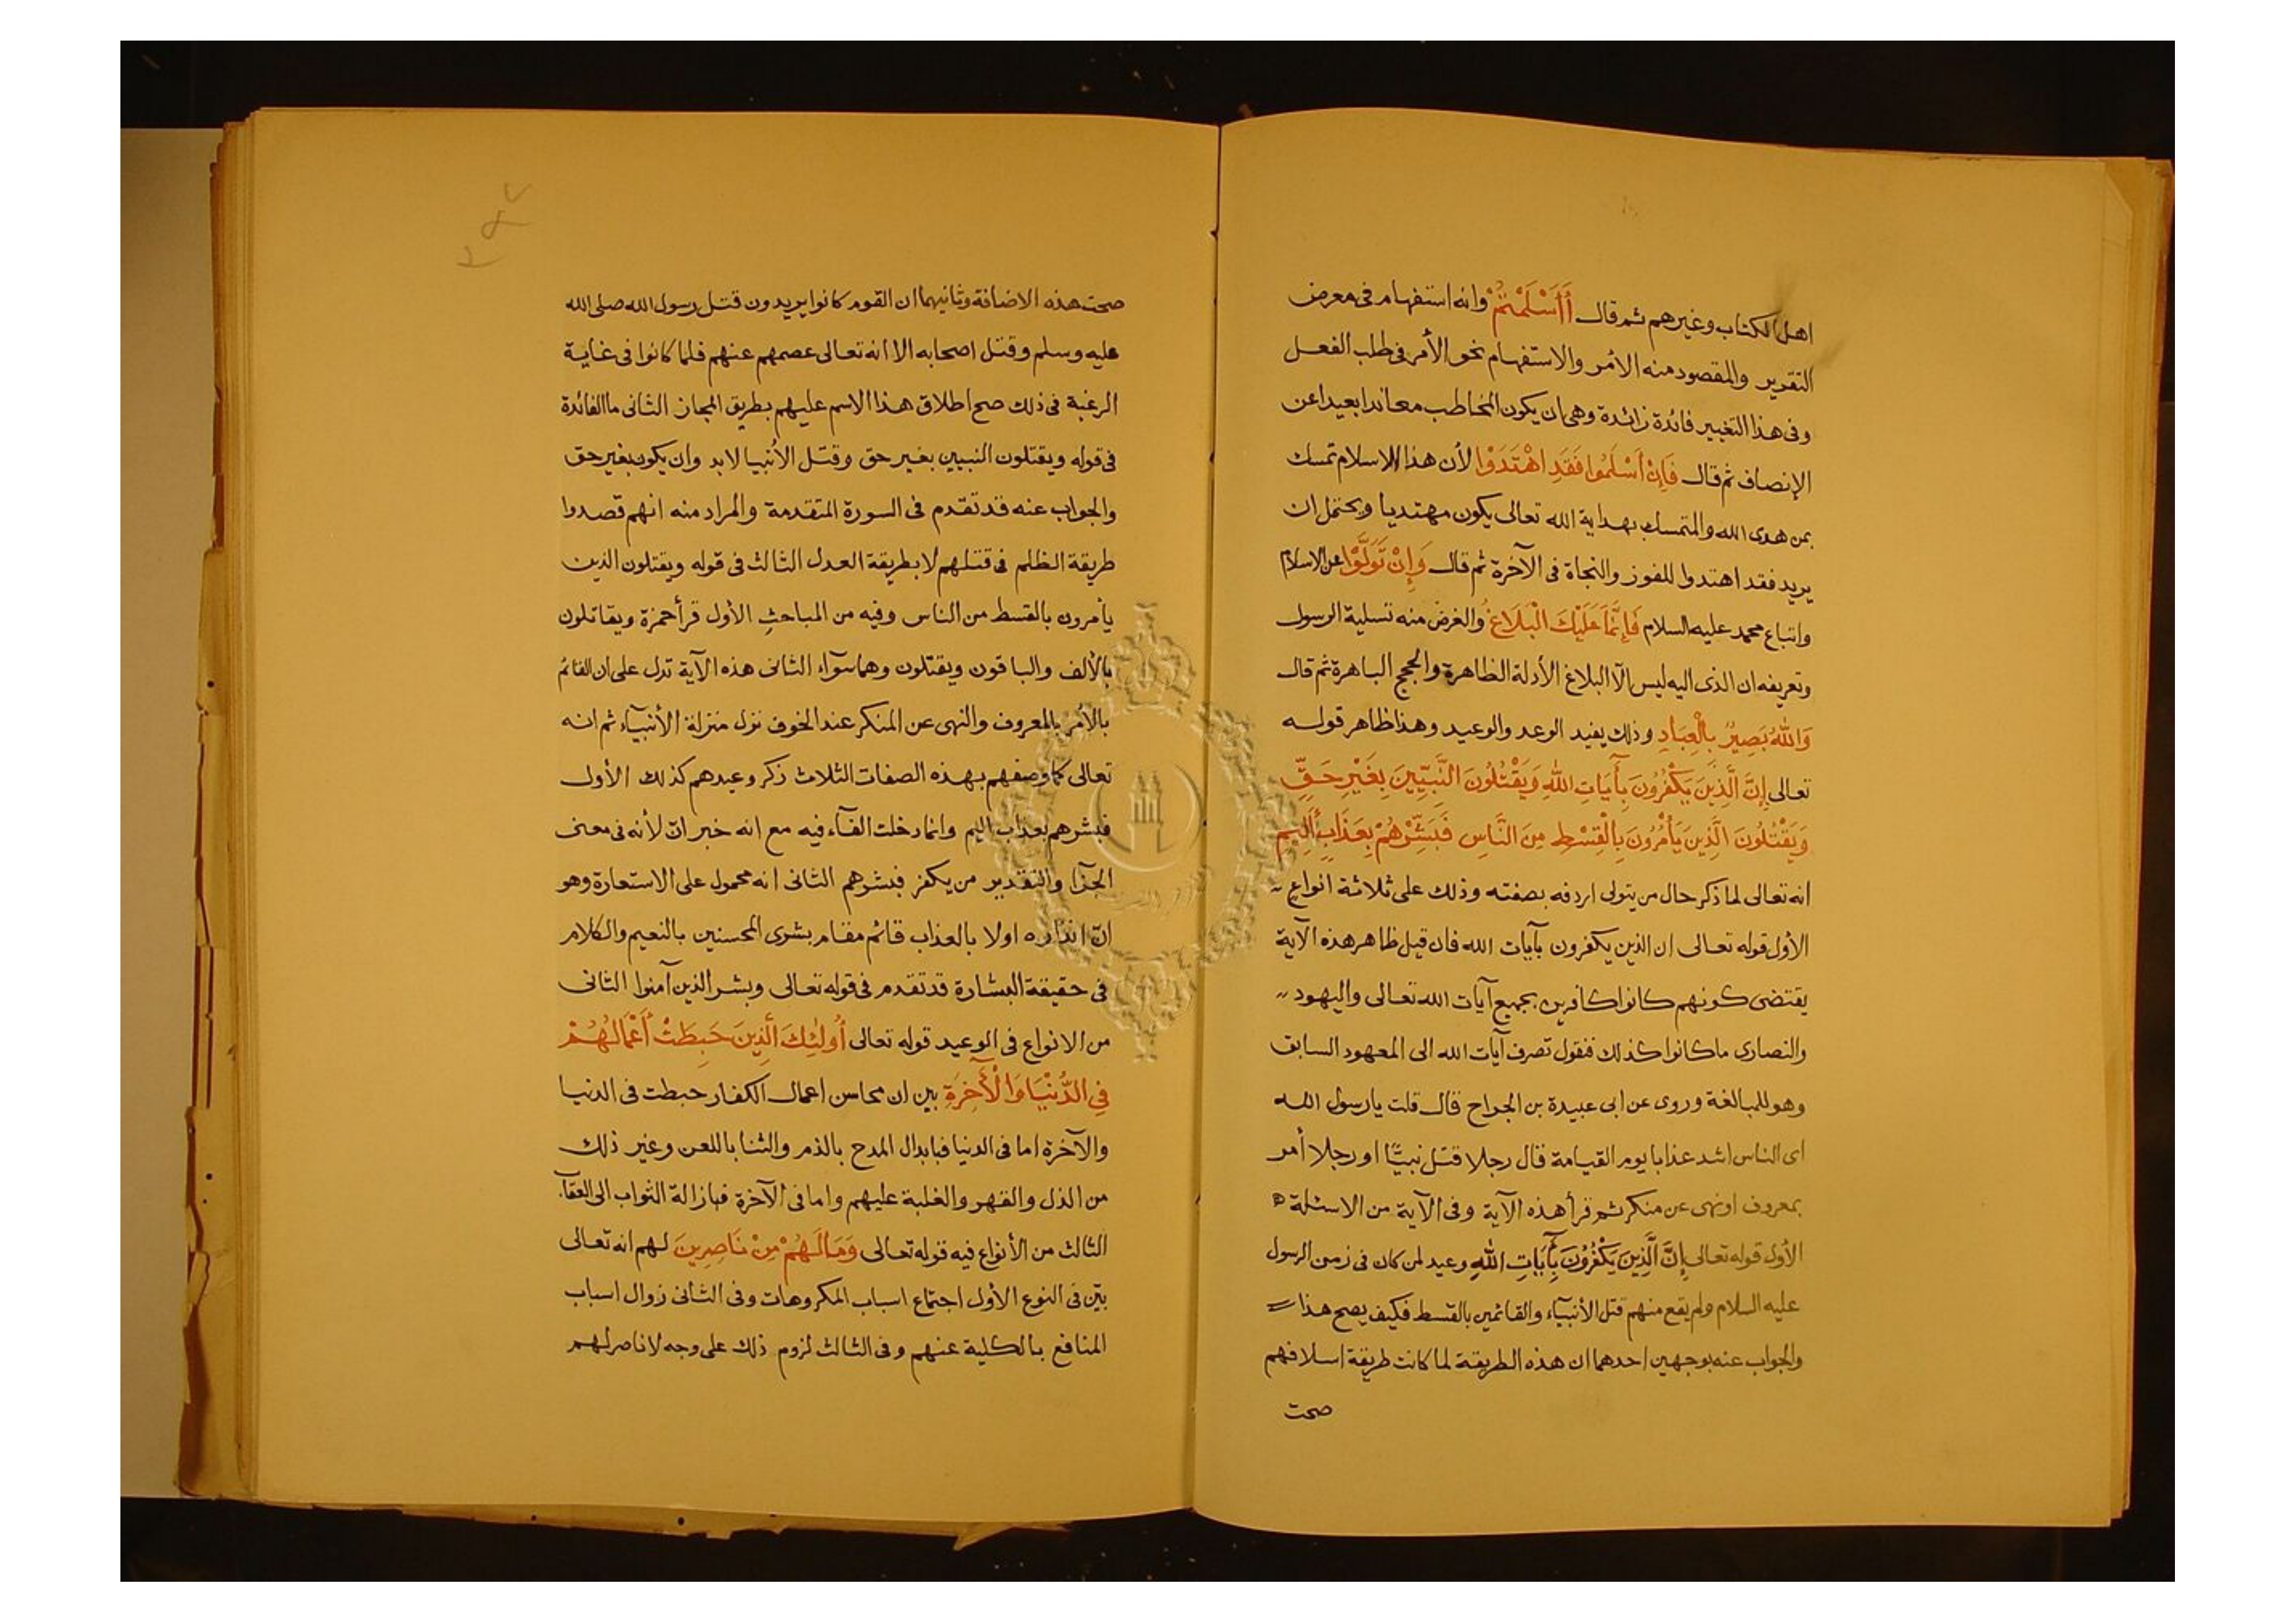 اهل الكتاب وغيرهم ثم قال أَأَسْلَمْتُمْ وانه استفهام فى معرض
التقرير والمقصود منه الأمر والاستفهام نحو الأمر فى طلب الفعل
وفى هذا التغيير فائدة زائدة وهى ان يكون المخاطب معاندا بعيدا عن
الإنصاف ثم قال فَاِنْ أَسْلَمُوا فَقَدِ اهْتَدَوْا لأن هذا الاسلام تمسك
بمن هدى الله والمتمسك بهداية الله تعالى يكون مهتديا ويحتمل ان
يريد فقد اهتدوا للفوز والنجاة فى الآخرة ثم قال وَإِنْ تَوَلَّوْا عن الاسلام
واتباع محمد عليه السلام فَإِنَّمَا عَلَيْكَ الْبَلَاغُ والغرض منه تسلية الرسول
وتعريفه ان الذى اليه ليس الآ البلاغ الأدلة الظاهرة والحجج الباهرة ثم قال
وَاللهُ بَصِيرٌ بِالْعِبَادِ وذلك يفيد الوعد والوعيد وهذا ظاهر قوله
تعالى إِنَّ الَّذِينَ يَكْفُرُونَ بِآَيَاتِ اللهِ وَيَقْتُلُونَ النَّبِيِّينَ بِغَيْرِ حَقٍّ
وَيَقْتُلُونَ الَّذِينَ يَأْمُرُونَ بِالْقِسْطِ مِنَ النَّاسِ فَبَشِّرْهُمْ بِعَذَابٍ أَلِيمٍ
انه تعالى لما ذكر حال من يتولى اردفه بصفته وذلك على ثلاثة انواع
الأول قوله تعالى ان الذين يكفرون بآيات الله فان قيل ظاهر هذه الآية
يقتضى كونهم كانوا كافرين بجميع آيات الله تعالى واليهود
والنصارى ما كانوا كذلك فنقول تصرف آيات الله الى المعهود السابق
وهو للمبالغة وروى عن ابى عبيدة بن الجراح قال قلت يا رسول الله
اى الناس اشد عذابا يوم القيامة قال رجلا قتل نبيًّا او رجلا أمر
بمعروف او نهى عن منكر ثم قرأ هذه الآية وفى الآية من الاسئلة
الأول قوله تعالى إِنَّ الَّذِينَ يَكْفُرُونَ بِآيَاتِ اللهِ وعيد لمن كان فى زمن الرسول
عليه السلام ولم يقع منهم قتل الأنبيآء والقائمين بالقسط فكيف يصح هذا
والجواب عنه بوجهين احدهما ان هذه الطريقة لما كانت طريقة اسلافهم
صحت
صحت هذه الاضافة وثانيهما ان القوم كانوا يريدون قتل رسول الله صلى الله
عليه وسلم وقتل اصحابه الا انه تعالى عصمهم عنهم فلما كانوا فى غاية
الرغبة فى ذلك صح اطلاق هذا الاسم عليهم بطريق المجاز الثانى ما الفائدة
فى قوله ويقتلون النبيين بغير حق وقتل الأنبيا لابد وان يكون بغير حق
والجواب عنه قد تقدم فى السورة المتقدمة والمراد منه انهم قصدوا
طريقة الظلم فى قتلهم لا بطريقة العدل الثالث فى قوله ويقتلون الذين
يأمرون بالقسط من الناس وفيه من المباحث الأول قرأ حمزة ويقاتلون
بالألف والباقون ويقتلون وهما سوآء الثانى هذه الآية تدل على ان القائم
بالأمر بالمعروف والنهى عن المنكر عند الخوف نزل منزلة الأنبيآء ثم انه
تعالى كما وصفهم بهذه الصفات الثلاث ذكر وعيدهم كذلك الأول
فبشرهم بعذاب اليم وانما دخلت الفآء فيه مع انه خبر انّ لأنه فى معنى
الجزا والتقدير من يكفر فبشرهم الثانى انه محمول على الاستعارة وهو
انّ انذاره اولا بالعذاب قائم مقام بشرى المحسنين بالنعيم والكلام
فى حقيقة البشارة قد تقدم فى قوله تعالى وبشر الذين آمنوا الثانى
من الانواع فى الوعيد قوله تعالى أُولَئِكَ الَّذِينَ حَبِطَتْ أَعْمَالُهُمْ
فِى الدُّنْيَا وَالْآخِرَةِ بين ان محاسن اعمال الكفار حبطت فى الدنيا
والآخرة اما فى الدنيا فبابدال المدح بالذم والثنا باللعن وغير ذلك
من الذل والقهر والغلبة عليهم واما فى الآخرة فبازالة الثواب الى العقاب
الثالث من الأنواع فيه قوله تعالى وَمَا لَهُمْ مِنْ نَاصِرِينَ لهم انه تعالى
بيّن فى النوع الأول اجتماع اسباب المكروهات وفى الثانى زوال اسباب
المنافع بالكلية عنهم وفى الثالث لزوم ذلك على وجه لا ناصر لهم